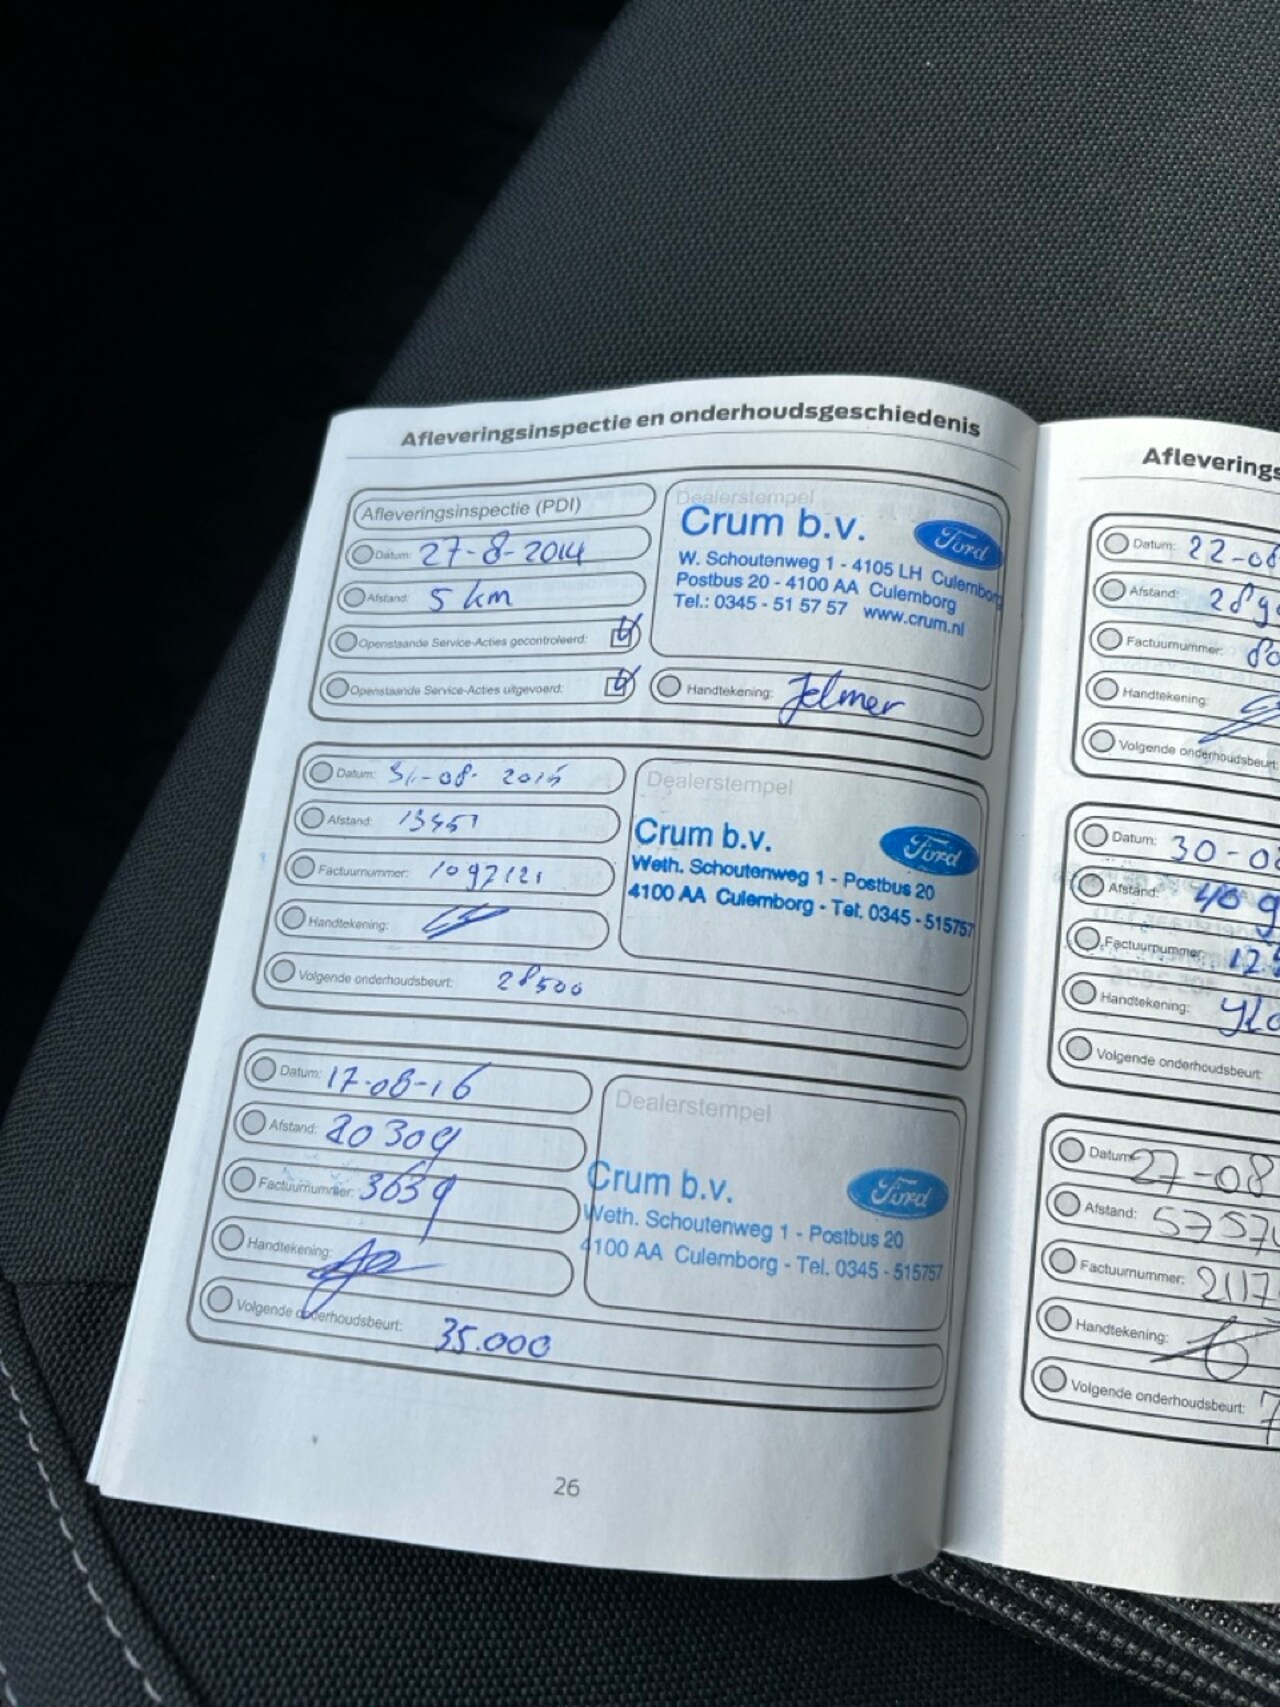 Afleveringsinspectie en onderhoudsgeschiedenis
Afleveringsinspectie (PDI)
Datum: 27-8-2014
Afstand: 5 km
Openstaande Service-Acties gecontroleerd:
Openstaande Service-Acties uitgevoerd:
Dealerstempel
Crum b.v. Ford
W. Schoutenweg 1 - 4105 LH Culemborg
Postbus 20 - 4100 AA Culemborg
Tel.: 0345 - 51 57 57 www.crum.nl
Handtekening: Jelmer
Datum: 31-08-2015
Afstand: 13451
Factuurnummer: 1097121
Handtekening:
Volgende onderhoudsbeurt: 28500
Dealerstempel
Crum b.v. Ford
Weth. Schoutenweg 1 - Postbus 20
4100 AA Culemborg - Tel. 0345 - 515757
Datum: 17-08-16
Afstand: 20309
Factuurnummer: 3639
Handtekening:
Volgende onderhoudsbeurt: 35.000
Dealerstempel
Crum b.v. Ford
Weth. Schoutenweg 1 - Postbus 20
4100 AA Culemborg - Tel. 0345 - 515757
26
Afleverings
Datum: 22-08
Afstand: 289
Factuurnummer: 80
Handtekening:
Volgende onderhoudsbeurt:
Datum: 30-08
Afstand: 409
Factuurnummer: 12
Handtekening:
Volgende onderhoudsbeurt:
Datum: 27-08
Afstand: 5757
Factuurnummer: 2117
Handtekening:
Volgende onderhoudsbeurt: 7